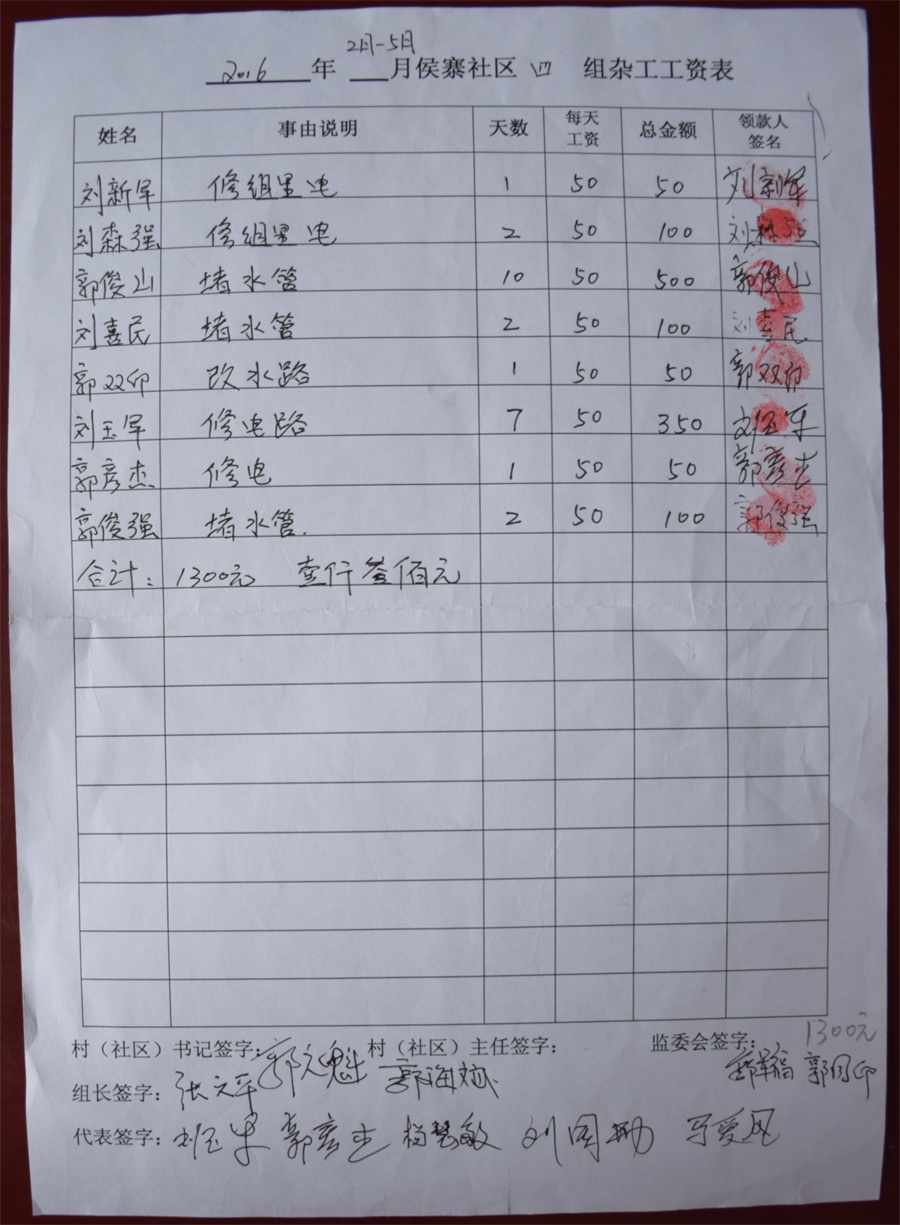 2月-5月
2016 年 月侯寨社区 四 组杂工工资表
姓名 事由说明 天数 每天工资 总金额 领款人签名
刘新军 修组里电 1 50 50 刘新军
刘森强 修组里电 2 50 100 刘森强
郭俊山 堵水管 10 50 500 郭俊山
刘喜民 堵水管 2 50 100 刘喜民
郭双印 改水路 1 50 50 郭双印
刘玉军 修电路 7 50 350 刘玉军
郭彦杰 修电 1 50 50 郭彦杰
郭俊强 堵水管. 2 50 100 郭俊强
合计: 1300元 壹仟叁佰元
1300元
村（社区）书记签字: 郭文魁 村（社区）主任签字: 监委会签字:
组长签字: 张文平 郭海 郭同印
代表签字: 刘玉军 郭彦杰 杨慧敏 刘国勋 马爱风